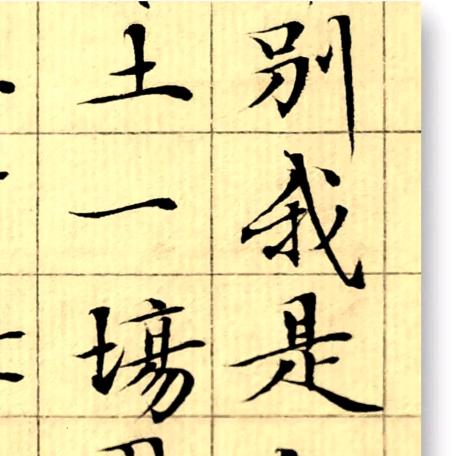 别我是
土一場